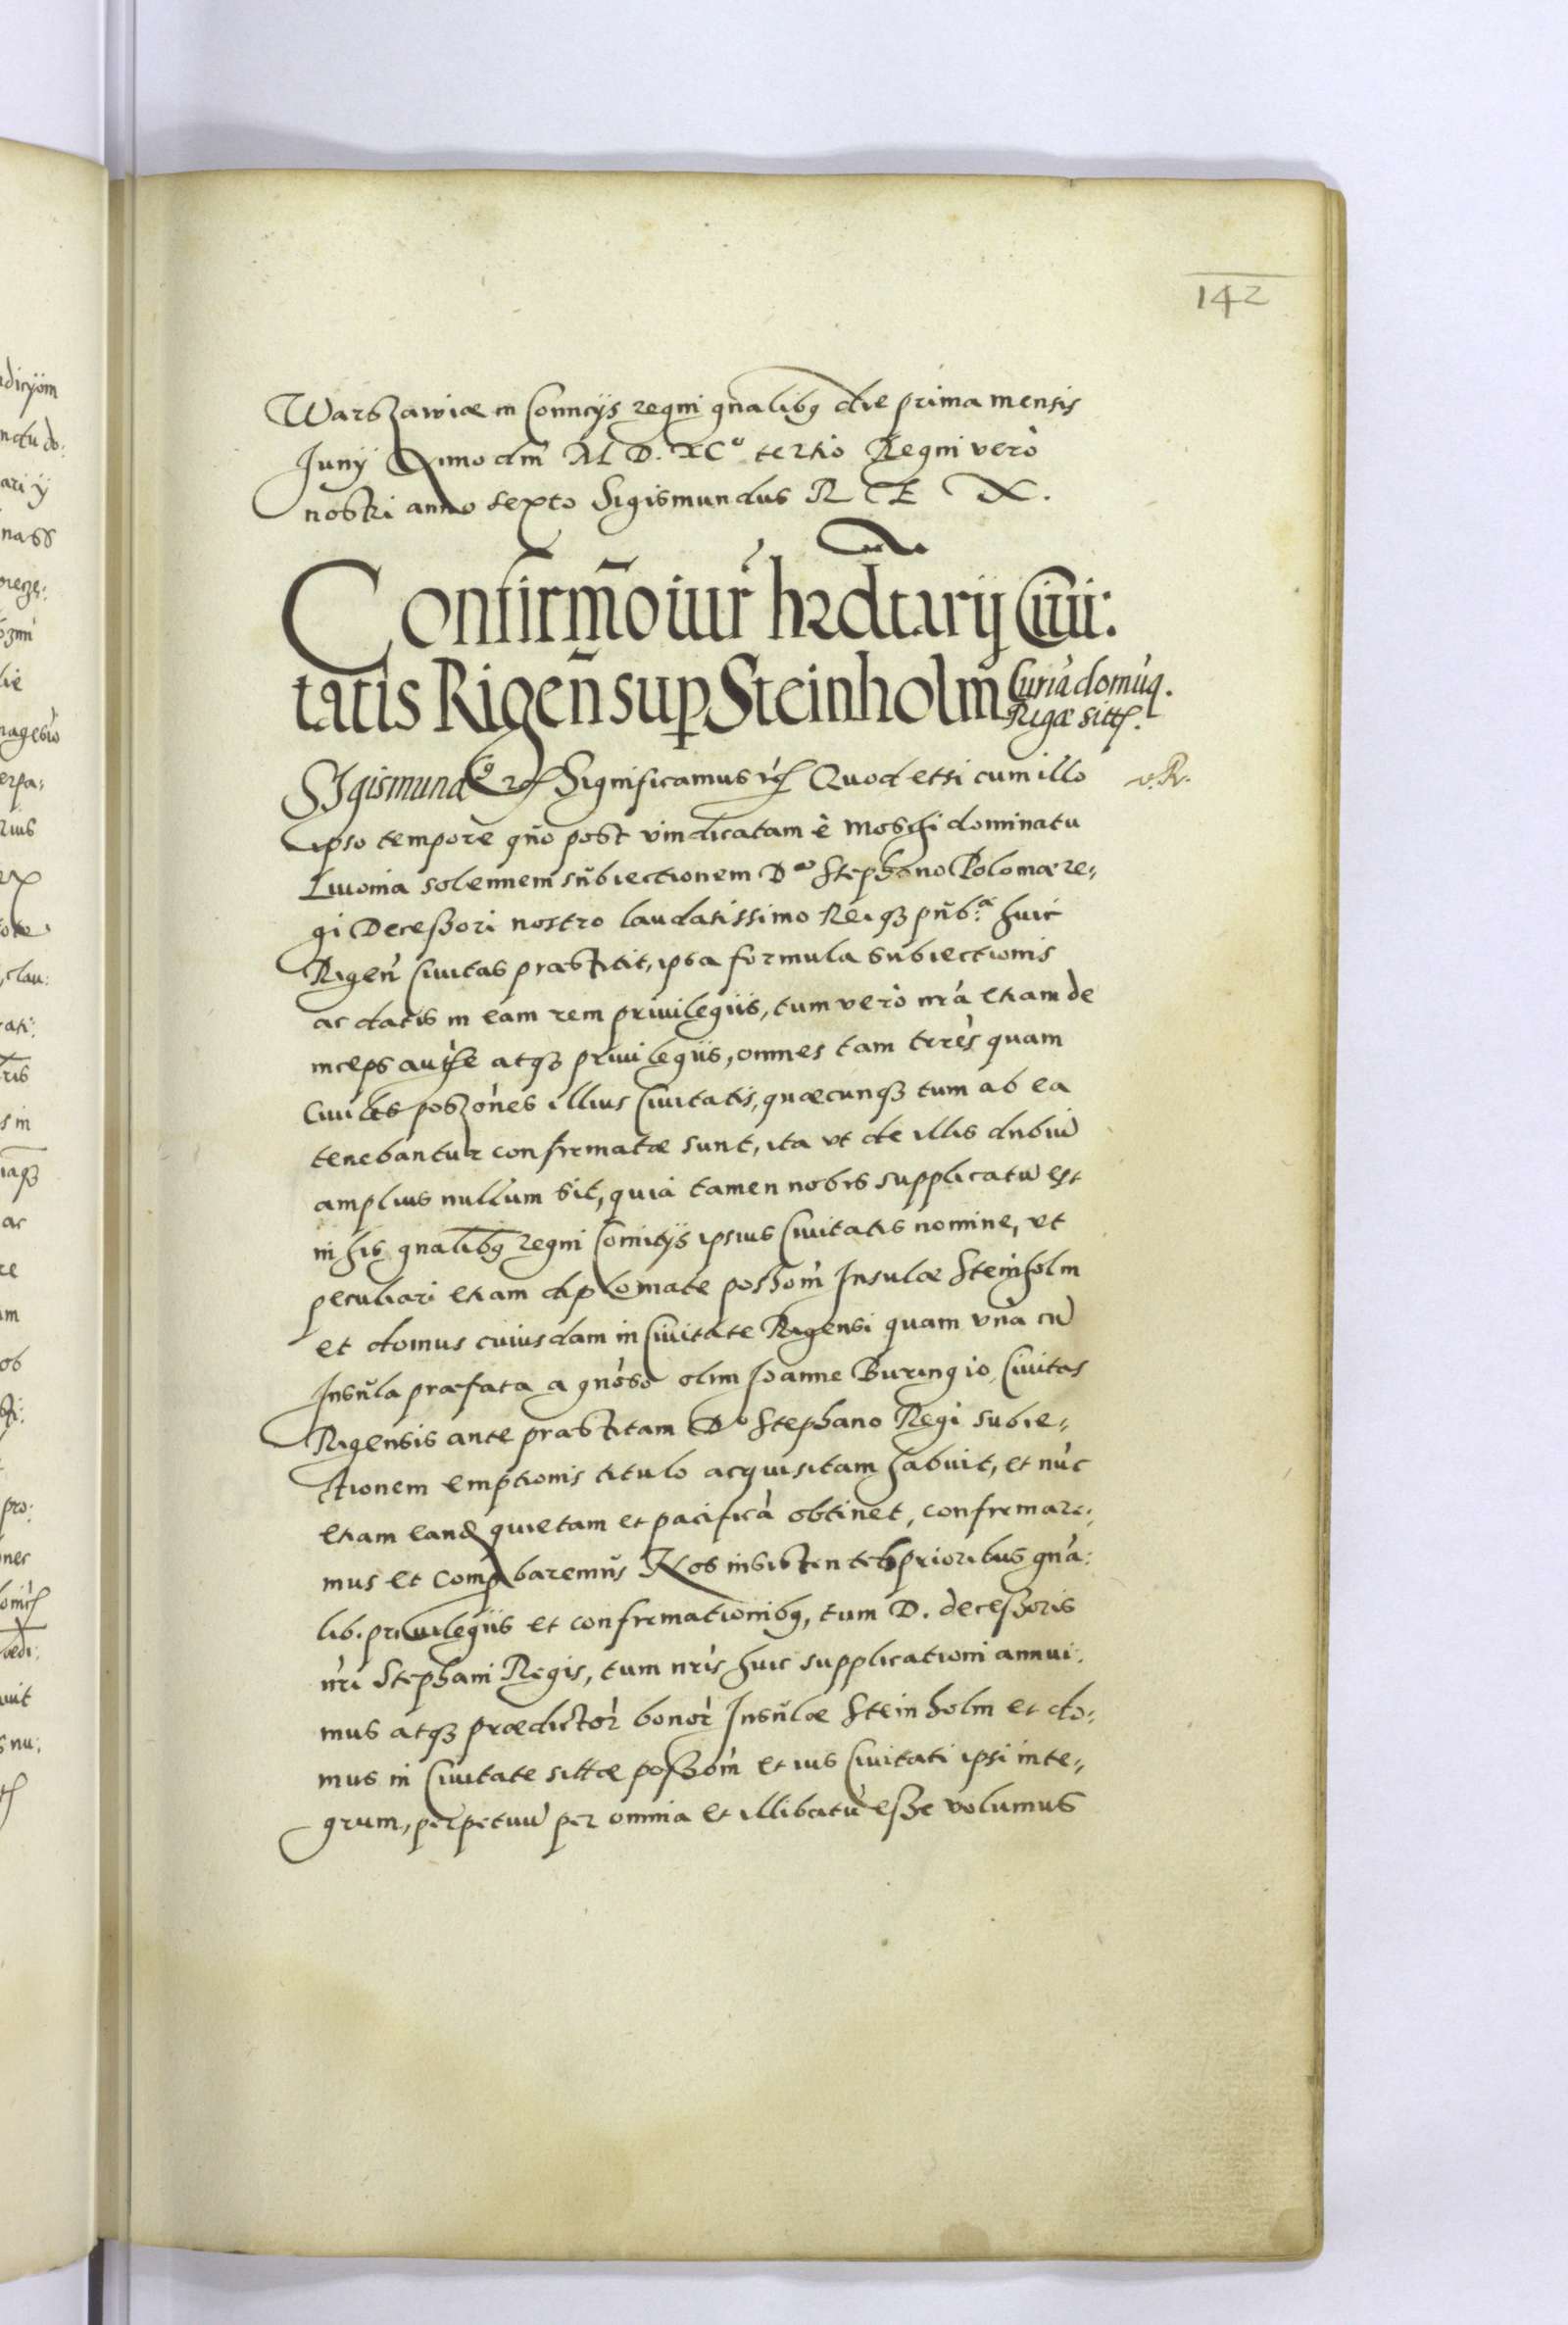 142
Warszawiæ in Comitijs regni gnalibq die prima mensis
Junij Anno dni M D. XCº tertio Regni vero
nostri anno sexto Sigismundus R E X.
Confirmõ iur hædtarij Civi:
tatis Rigeñ sup Steinholm Curia domuq.
Rigæ sitt.
Sigismund9 Significamus Quod etsi cum illo
v. R.
ipso tempore quo post vindicatam è Moschi dominatu
Livonia solennem subiectionem Dº Stephano Poloniæ re,,
gi Decessori nostro laudatissimo Reiqз pub.ᵃ huic
Rigen Civitas præstitit, ipsa formula subiectionis
ac datis in eam rem privilegiis, tum vero nrã etiam de
inceps atqз privilegiis, omnes tam trres quam
Civiles poszones illius Civitatis, quæcunqз tum ab ea
tenebantur confirmatæ sunt, ita vt de illis dubiũ
amplius nullum sit, quia tamen nobis supplicatũ est
in his gnalibq regni Comitijs ipsius Civitatis nomine, vt
peculiari etiam diplomate possom Insulæ Steinholm
et domus cuiusdam in Civitate Rigensi quam vna cũ
Insula præfata a gnoso olim Joanne Buringio, Civitas
Rigensis ante præstitam Dº Stephano Regi subie,,
ctionem emptionis titulo acquisitam habuit, et nũc
etiam eand quietam et pacificã obtinet, confirmare,,
mus et comprobaremus Nos insistentes prioribus gna:
lib. privilegiis et confirmationibq, tum D. decessoris
nri Stephani Regis, tum nris huic supplicationi annui:
mus atqз prædictor bonor Insulæ Steinholm et do:
mus in Civitate sittæ possom et ius Civitati ipsi inte,,
grum, perpetuũ per omnia et illibatũ esse volumus